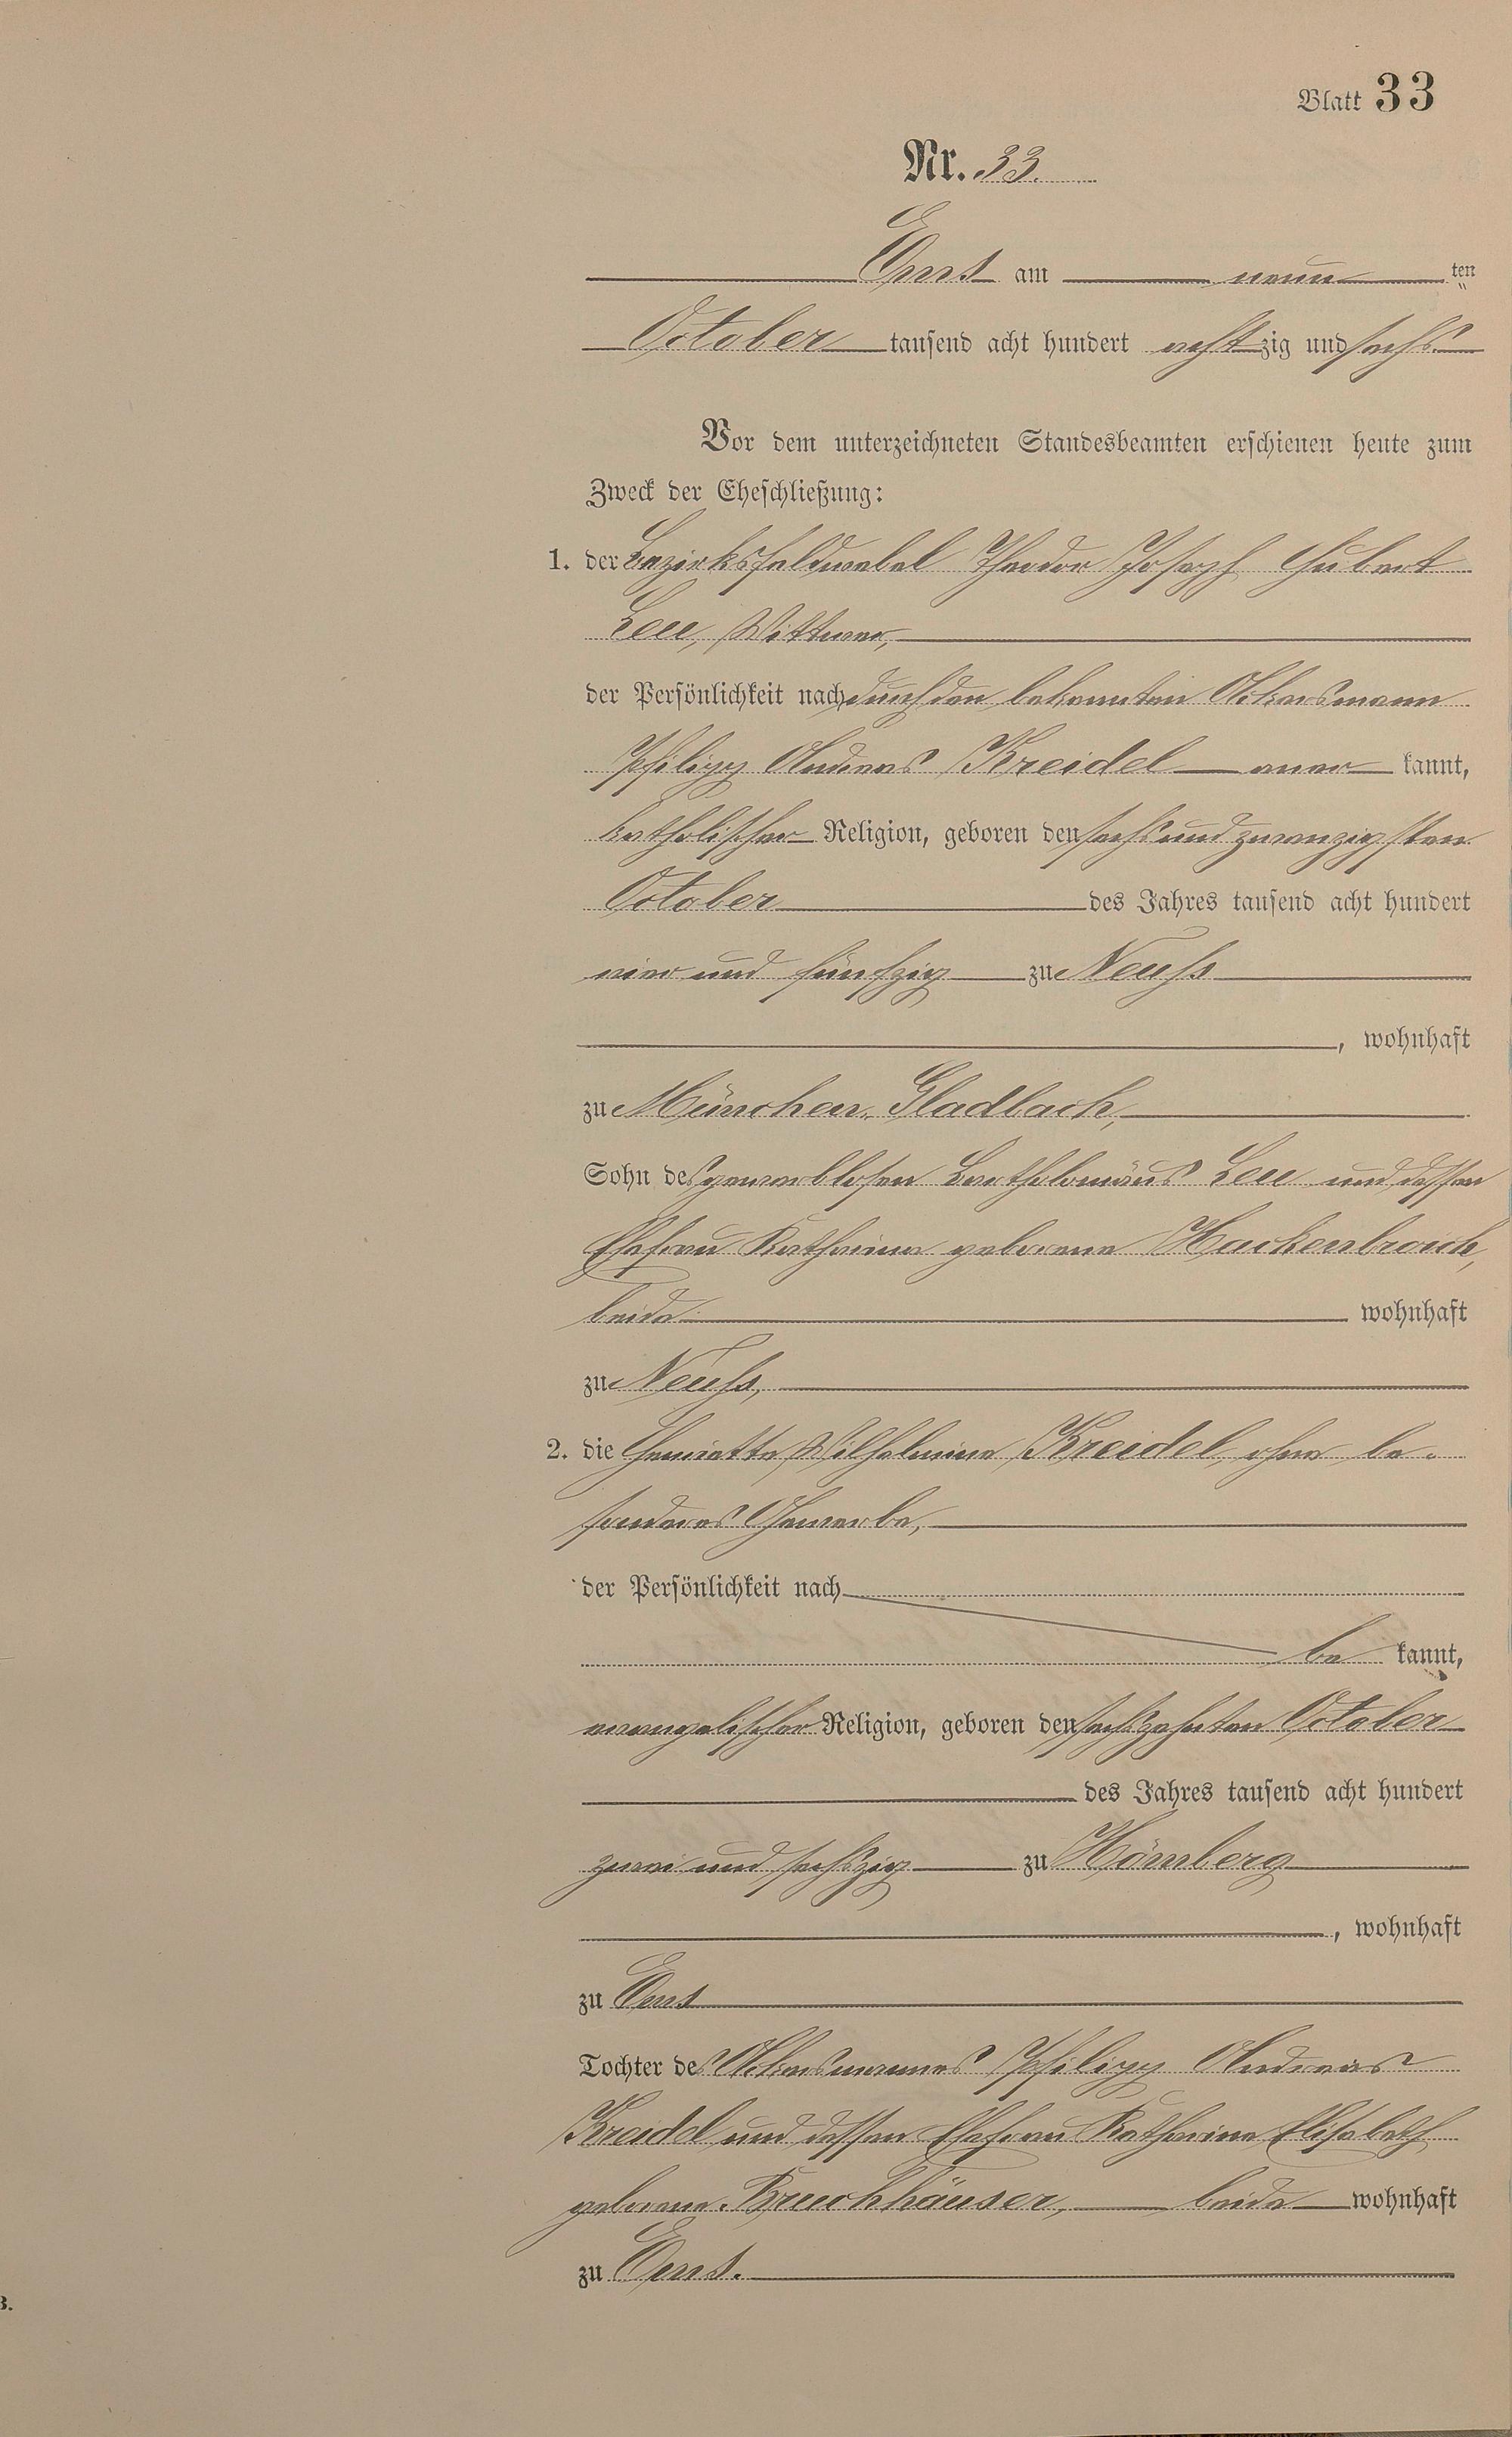 Blatt 33
Nr. 33.
Ems am neun ten
October tausend acht hundert achtzig und sechs
Vor dem unterzeichneten Standesbeamten erschienen heute zum
Zweck der Eheschließung:
1. der Bezirksfeldwebel Theodor Joseph Hubert
Leu, Wittwer,
der Persönlichkeit nach durch den bekannten Ackersmann
Philipp Andreas Kreidel aner kannt,
katholischer Religion, geboren den sechs und zwanzigsten
October des Jahres tausend acht hundert
vier und fünfzig zu Neuss
, wohnhaft
zu München-Gladbach,
Sohn des gewerblosen Bartholomäus Leu und dessen
Ehefrau Katharina geborene Hackenbroich,
beide wohnhaft
zu Neuss,
2. die Henriette Wilhelmine Kreidel, ohne be-
sonderes Gewerbe,
der Persönlichkeit nach
be kannt,
evangelischer Religion, geboren den sechszehnten October
des Jahres tausend acht hundert
zwei und sechszig zu Hömberg
, wohnhaft
zu Ems
Tochter des Ackersmannes Philipp Andreas
Kreidel und dessen Ehefrau Katharina Elisabeth
geborene Bruchhäuser, beide wohnhaft
zu Ems.
3.